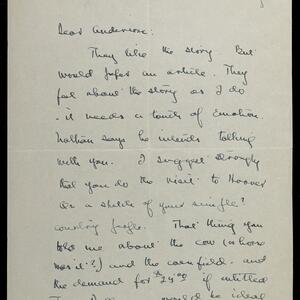 Dear Anderson:
They like the story. But
would prefer an article. They
feel about the story as I do
- it needs a touch of Emotion.
Nathan says he intends talking
with you. I suggest strongly
that you do the visit to Hoover
or a sketch of your simple
country people. That thing you
told me about the cow (whose
was it?) and the cornfield - and
the demand for $24.00 if entitled
would be ideal